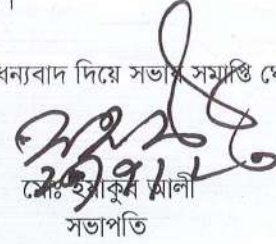 ধন্যবাদ দিয়ে সভার সমাপ্তি
মোঃ ইয়াকুব আলী
সভাপতি